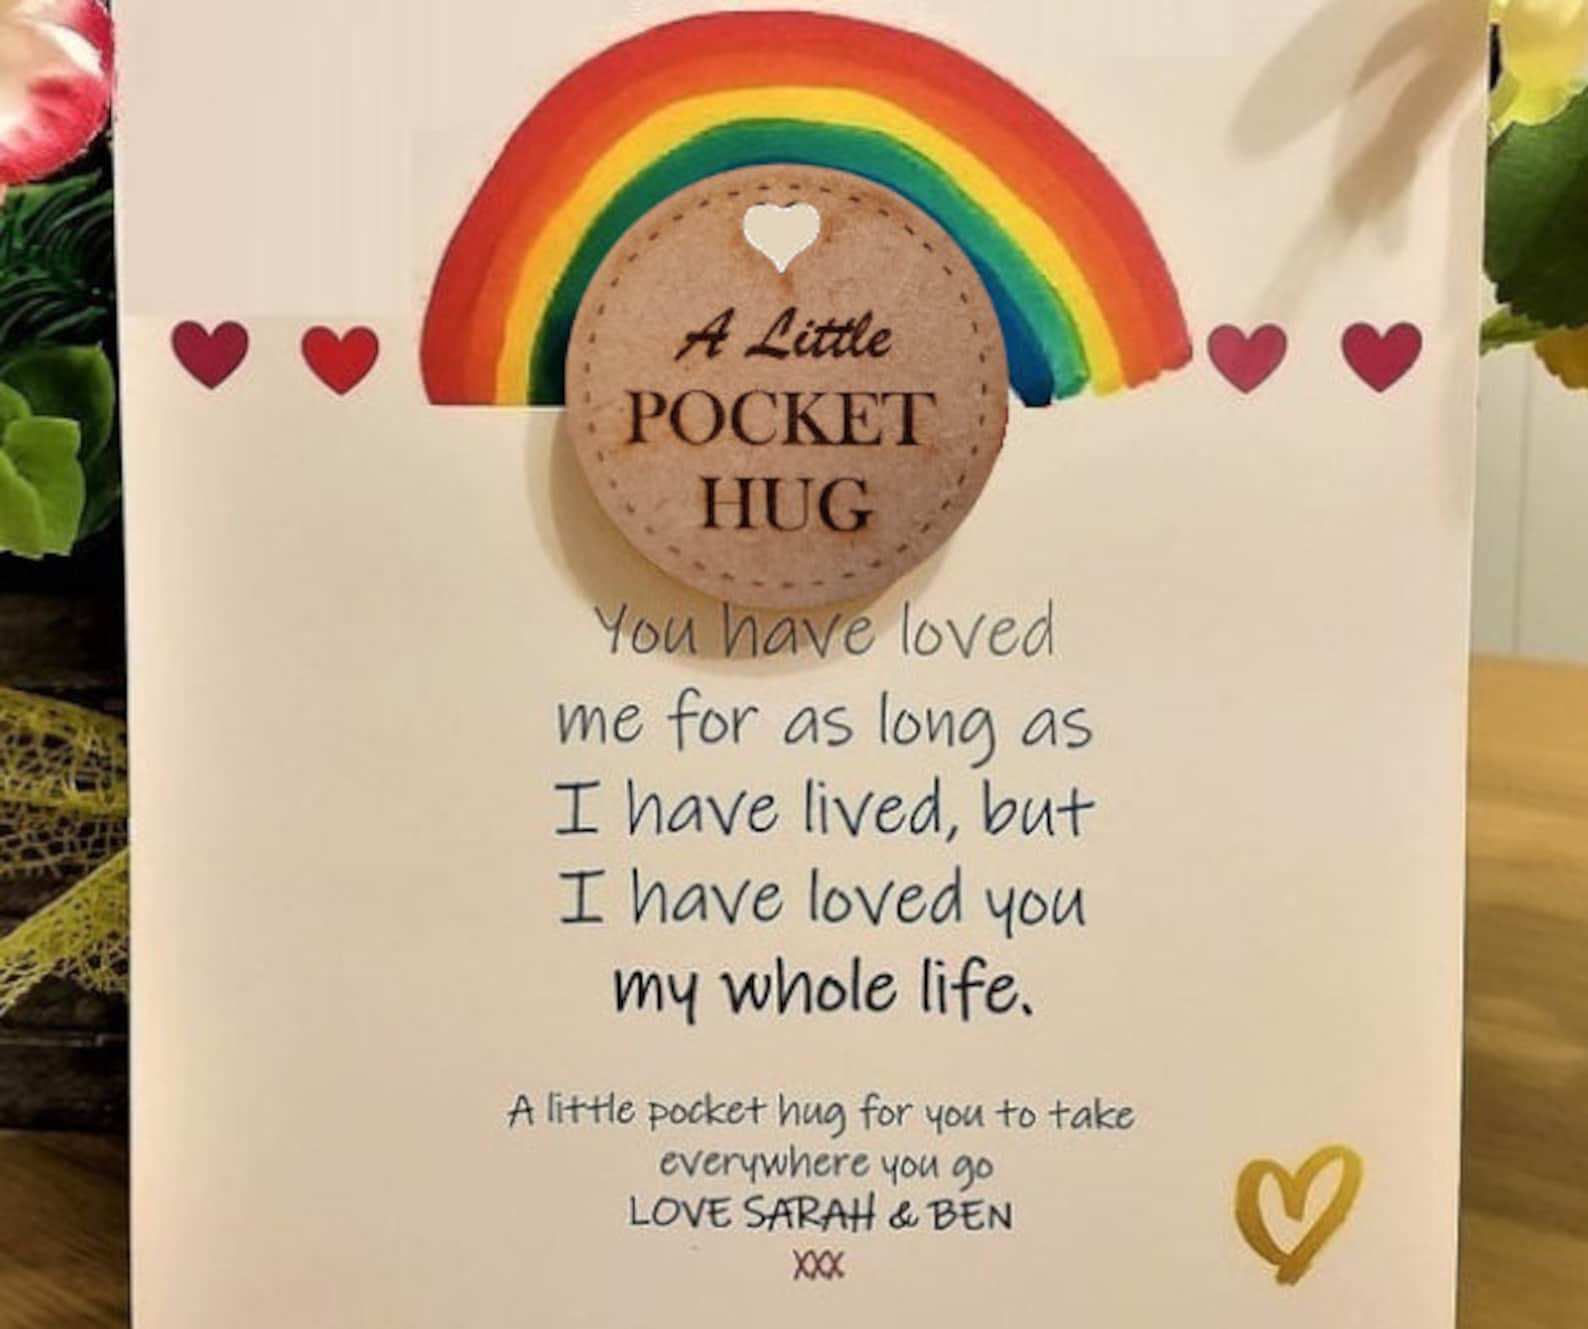 A Little
POCKET
HUG
You have loved
me for as long as
I have lived, but
I have loved you
my whole life.
A little pocket hug for you to take
everywhere you go
LOVE SARAH & BEN
XXX